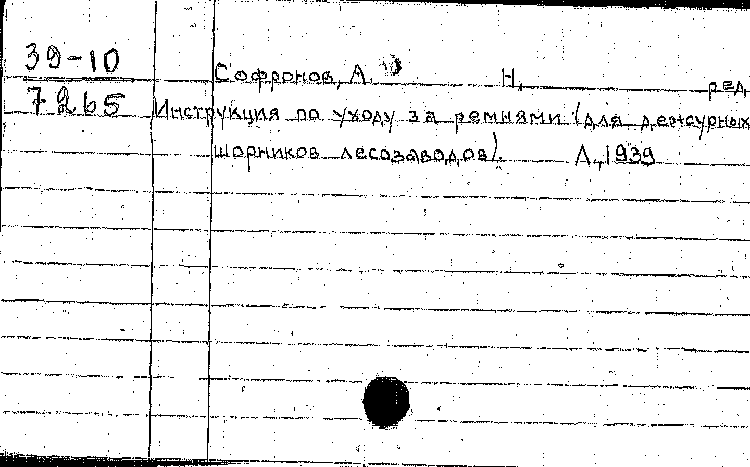 39-10
Софронов, А. Н, ред.
7265 Инструкция по уходу за ремнями (для дежурных
шорников лесозаводов). Л., 1939